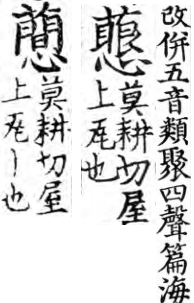 改併五音類聚四聲篇海
莫耕切屋
上瓦也
莫耕切屋
上瓦丨也